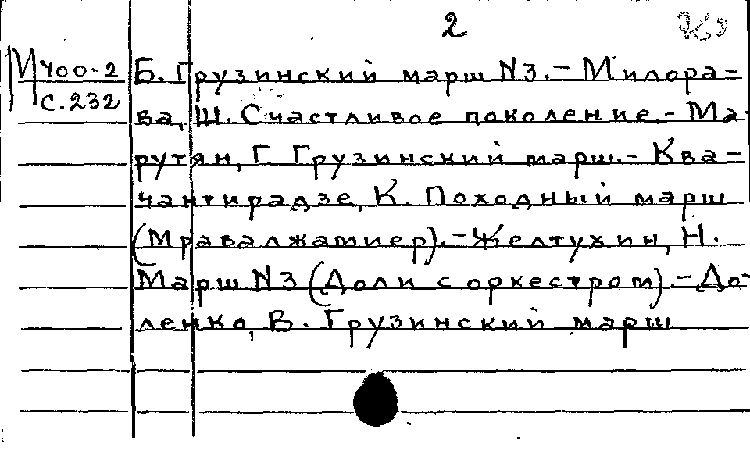 2
М 400-2
С. 232
Б. Грузинский марш N3. – Милора=
ва, Ш. Счастливое поколение. – Ма-
рутян, Г. Грузинский марш. – Ква-
чантирадзе, К. Походный марш
(Мравалжамиер). – Желтухин, Н.
Марш N3 (Доли с оркестром). – До-
ленко, В. Грузинский марш